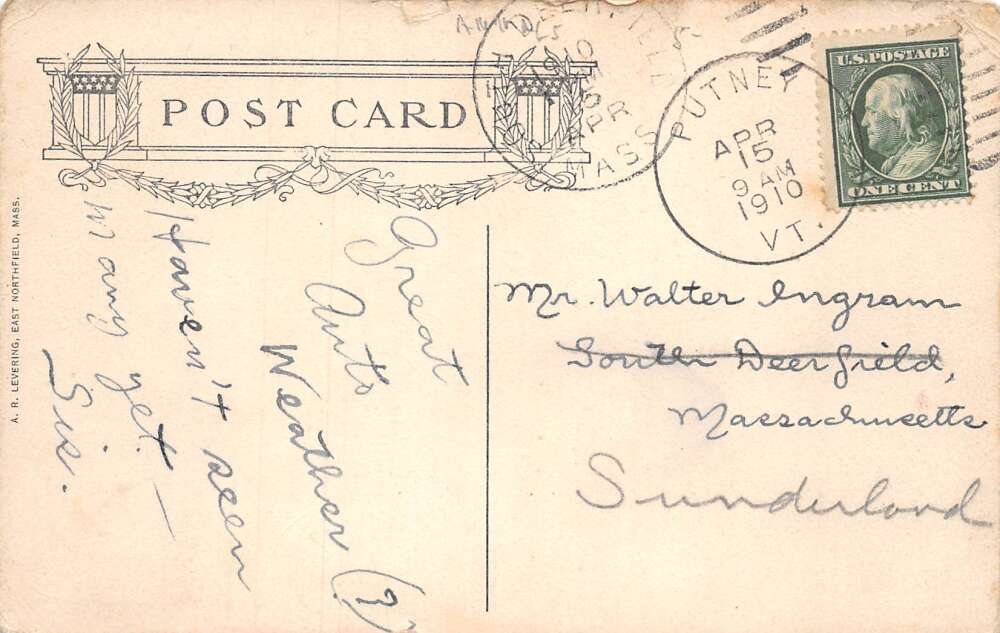 POST CARD
U.S. POSTAGE
ONE CENT
PUTNEY
APR
15
9 AM
1910
VT.
APR
MASS
A. R. LEVERING, EAST NORTHFIELD, MASS.
Great
Auto
Weather (?)
Haven't seen
many yet —
Sis.
Mr. Walter Ingram
South Deerfield,
Massachusetts
Sunderland